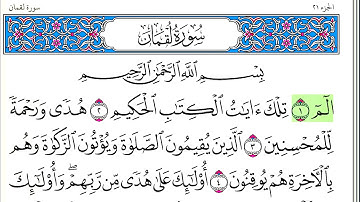 الجزء ٢١
سورة لقمان
سُورَةُ لُقْمَانَ
بِسْمِ اللَّهِ الرَّحْمَٰنِ الرَّحِيمِ
الٓمٓ ١ تِلْكَ ءَايَٰتُ الْكِتَٰبِ الْحَكِيمِ ٢ هُدًى وَرَحْمَةً
لِّلْمُحْسِنِينَ ٣ الَّذِينَ يُقِيمُونَ الصَّلَوٰةَ وَيُؤْتُونَ الزَّكَوٰةَ وَهُم
بِالْأَخِرَةِ هُمْ يُوقِنُونَ ٤ أُوْلَٰٓئِكَ عَلَىٰ هُدًى مِّن رَّبِّهِمْ ۖ وَأُوْلَٰٓئِكَ